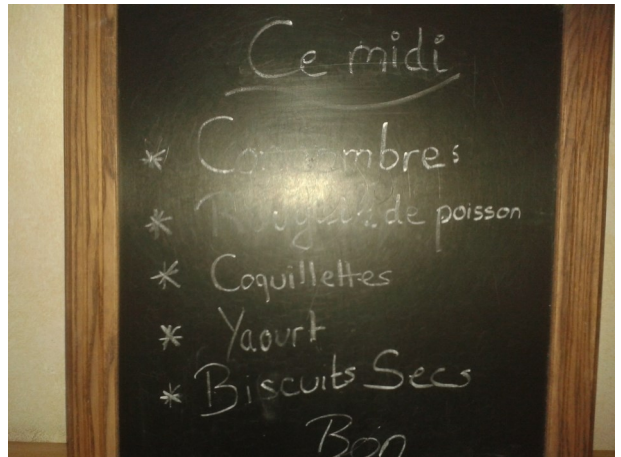 Ce midi
* Concombres
* de poisson
* Coquillettes
* Yaourt
* Biscuits Secs
Bon